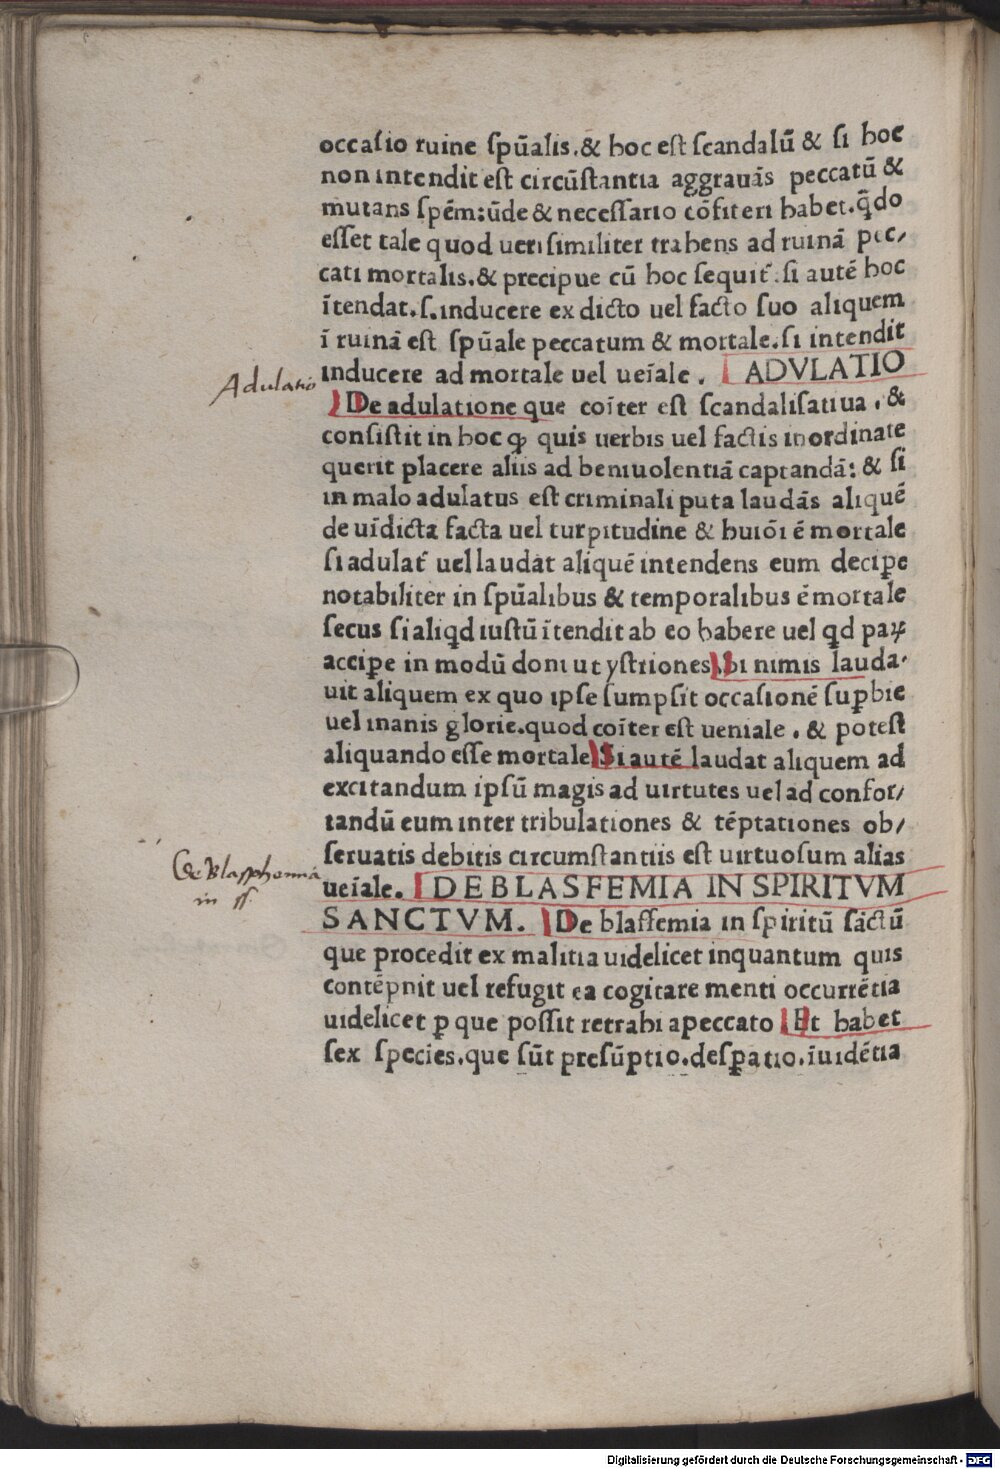 occaſio ruine ſpūalis.& hoc eſt ſcandalū & ſi hoc
non intendit eſt circūſtantia aggrauās peccatū &
mutans ſpēm:ūde & neceſſario cōfiteri habet.q̄do
eſſet tale quod ueriſimiliter trahens ad ruinā pec/
cati mortalis.& precipue cū hoc ſequit᷑.ſi autē hoc
ītendat.ſ.inducere ex dicto uel facto ſuo aliquem
ī ruinā eſt ſpūale peccatum & mortale.ſi intendit
inducere ad mortale uel ueīale. ADVLATIO
Adulatio
De adulatione que coīter eſt ſcandaliſatiua . &
conſiſtit in hoc ꝙ quis uerbis uel factis inordinate
querit placere aliis ad beniuolentiā captandā: & ſi
in malo adulatus eſt criminali puta laudās aliquē
de uīdicta facta uel turpitudine & huiōi ē mortale
ſi adulat᷑ uel laudat aliquē intendens eum deciꝑe
notabiliter in ſpūalibus & temporalibus ē mortale
ſecus ſi aliqd iuſtū ītendit ab eo habere uel qd paꝝ
acciꝑe in modū doni ut yſtriones Si nimis lauda-
uit aliquem ex quo ipſe ſumpſit occaſionē ſuꝑbie
uel inanis glorie.quod coīter eſt ueniale . & poteſt
aliquando eſſe mortale Si autē laudat aliquem ad
excitandum ipſū magis ad uirtutes uel ad confor/
tandū eum inter tribulationes & tēptationes ob/
ſeruatis debitis circumſtantiis eſt uirtuoſum alias
De Blasphemia
in ss.
ueīale. DE BLASFEMIA IN SPIRITVM
SANCTVM. De blaſfemia in ſpiritū ſāctū
que procedit ex malitia uidelicet inquantum quis
contēpnit uel refugit ea cogitare menti occurrētia
uidelicet ꝑ que poſſit retrahi a peccato Et habet
ſex ſpecies.que ſūt preſūptio.deſꝑatio.īuidētia
Digitalisierung gefördert durch die Deutsche Forschungsgemeinschaft - DFG